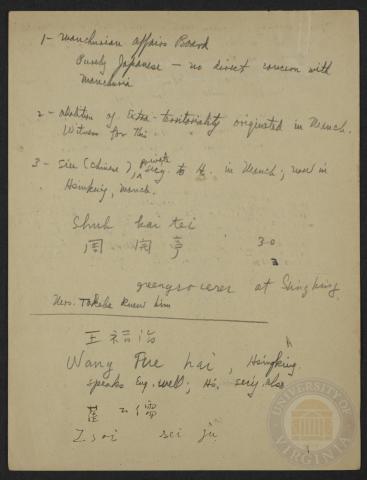 1 - Manchurian Affairs Board
Purely Japanese - no direct concern with
Manchuria
2 - abolition of Extra-territoriality originated in Manch.
Witness for this.
3 - (Chinese), private secy. to H. in Manch; now in
Hsinking, Manch.
Shuh kai tei
周 開 亨
30
greengrocerer at Shingking
Mrs. Takebe knew him
王
Wang Fue hai, Hsingking
speaks Eng. well; Hs. secy. also
儒
Zsai sei ju
UNIVERSITY OF
VIRGINIA